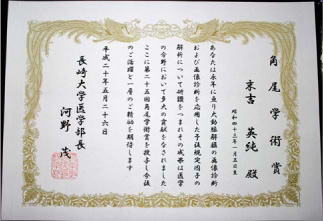 角尾学術賞
末吉 英純 殿
昭和四十三年一月五日生
あなたは永年に亘り大動脈解離の画像診断
および画像診断を応用した予後規定因子の
解析について研鑽をつまれその成果は医学
の分野において多大の貢献をなされました
ここに第二十五回角尾学術賞を授与し今後
のご活躍と一層のご精励を期待します
平成二十年五月二十六日
長崎大学医学部長
河野 茂